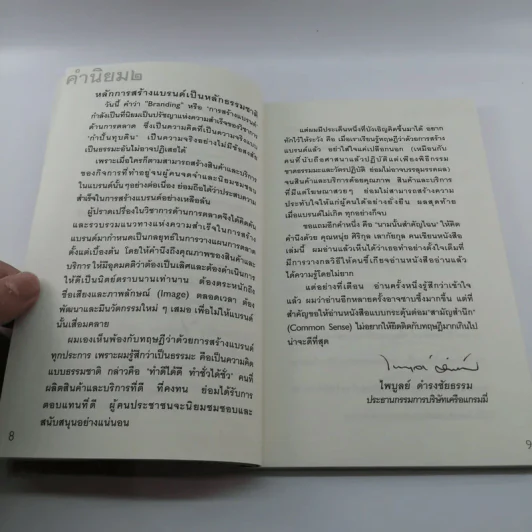 คำนิยม๒
หลักการสร้างแบรนด์เป็นหลักธรรมชาติ
วันนี้ คำว่า "Branding" หรือ "การสร้างแบรนด์"
กำลังเป็นที่นิยมเป็นปรัชญาแห่งความสำเร็จของวิชาการ
ด้านการตลาด ซึ่งเป็นความคิดที่เป็นความจริงแบบ
"กำปั้นทุบดิน" เป็นความจริงอย่างไม่มีข้อสงสัย
เป็นธรรมะอันไม่อาจปฏิเสธได้
เพราะเมื่อใครก็ตามสามารถสร้างสินค้าและบริการ
ของกิจการที่ทำอยู่จนผู้คนจดจำและนิยมชมชอบ
ในแบรนด์นั้นๆ อย่างต่อเนื่อง ย่อมถือได้ว่าประสบความ
สำเร็จในการสร้างแบรนด์อย่างเหลือล้น
ผู้ปราดเปรื่องในวิชาการด้านการตลาดจึงได้คิดค้น
และรวบรวมแนวทางแห่งความสำเร็จในการสร้าง
แบรนด์มากำหนดเป็นกลยุทธ์ในการวางแผนการตลาด
ตั้งแต่เบื้องต้น โดยให้คำนึงถึงคุณภาพของสินค้าและ
บริการ ให้มีอุดมคติว่าต้องเป็นเลิศและต้องดำเนินการ
ให้ดีเป็นนิตย์ตราบนานเท่านาน ต้องตระหนักถึง
ชื่อเสียงและภาพลักษณ์ (Image) ตลอดเวลา ต้อง
พัฒนาและมีนวัตกรรมใหม่ๆ เสมอ เพื่อไม่ให้แบรนด์
นั้นเสื่อมคลาย
ผมเองเห็นพ้องกับทฤษฎีว่าด้วยการสร้างแบรนด์
ทุกประการ เพราะผมรู้สึกว่าเป็นธรรมะ คือเป็นความคิด
แบบธรรมชาติ กล่าวคือ "ทำดีได้ดี ทำชั่วได้ชั่ว" คนที่
ผลิตสินค้าและบริการที่ดี ที่คงทน ย่อมได้รับการ
ตอบแทนที่ดี ผู้คนประชาชนจะนิยมชมชอบและ
สนับสนุนอย่างแน่นอน
8
แต่ผมมีประเด็นหนึ่งที่บังเอิญคิดขึ้นมาได้ อยาก
ทักไว้ให้ระวัง คือ เมื่อเราเรียนรู้ทฤษฎีว่าด้วยการสร้าง
แบรนด์แล้ว อย่าใส่ใจแค่เปลือกนอก (เหมือนกับ
คนที่นับถือศาสนาแล้วปฏิบัติแต่เพียงพิธีกรรม
จนสินค้าและบริการด้อยคุณภาพ สินค้าและบริการ
ที่มีแต่โฆษณาสวยๆ ย่อมไม่สามารถสร้างความ
ประทับใจให้แก่ผู้คนได้อย่างยั่งยืน ผลสุดท้าย
เมื่อแบรนด์ไม่เกิด ทุกอย่างก็จบ
ขอแถมอีกคำหนึ่ง คือ "นามนั้นสำคัญไฉน" ให้คิด
คำนึงด้วย คุณหนุ่ย ศิริกุล เลากัยกุล คนเขียนหนังสือ
เล่มนี้ ผมอ่านแล้วเห็นได้ว่าเธอทำอย่างตั้งใจเต็มที่
มีการวางกลวิธีให้คนขี้เกียจอ่านหนังสืออ่านแล้ว
ได้ความรู้โดยไม่ยาก
แต่อย่างที่เตือน อ่านครั้งหนึ่งรู้สึกว่าเข้าใจ
แล้ว ผมว่าอ่านอีกหลายครั้งอาจซาบซึ้งมากขึ้น แต่ที่
สำคัญขอให้อ่านหนังสือแบบกระตุ้นต่อม"สามัญสำนึก"
(Common Sense) ไม่อยากให้ยึดติดกับทฤษฎีมากเกินไป
น่าจะดีที่สุด
ไพบูลย์ ดำรงชัยธรรม
ประธานกรรมการบริษัทเครือแกรมมี่
9